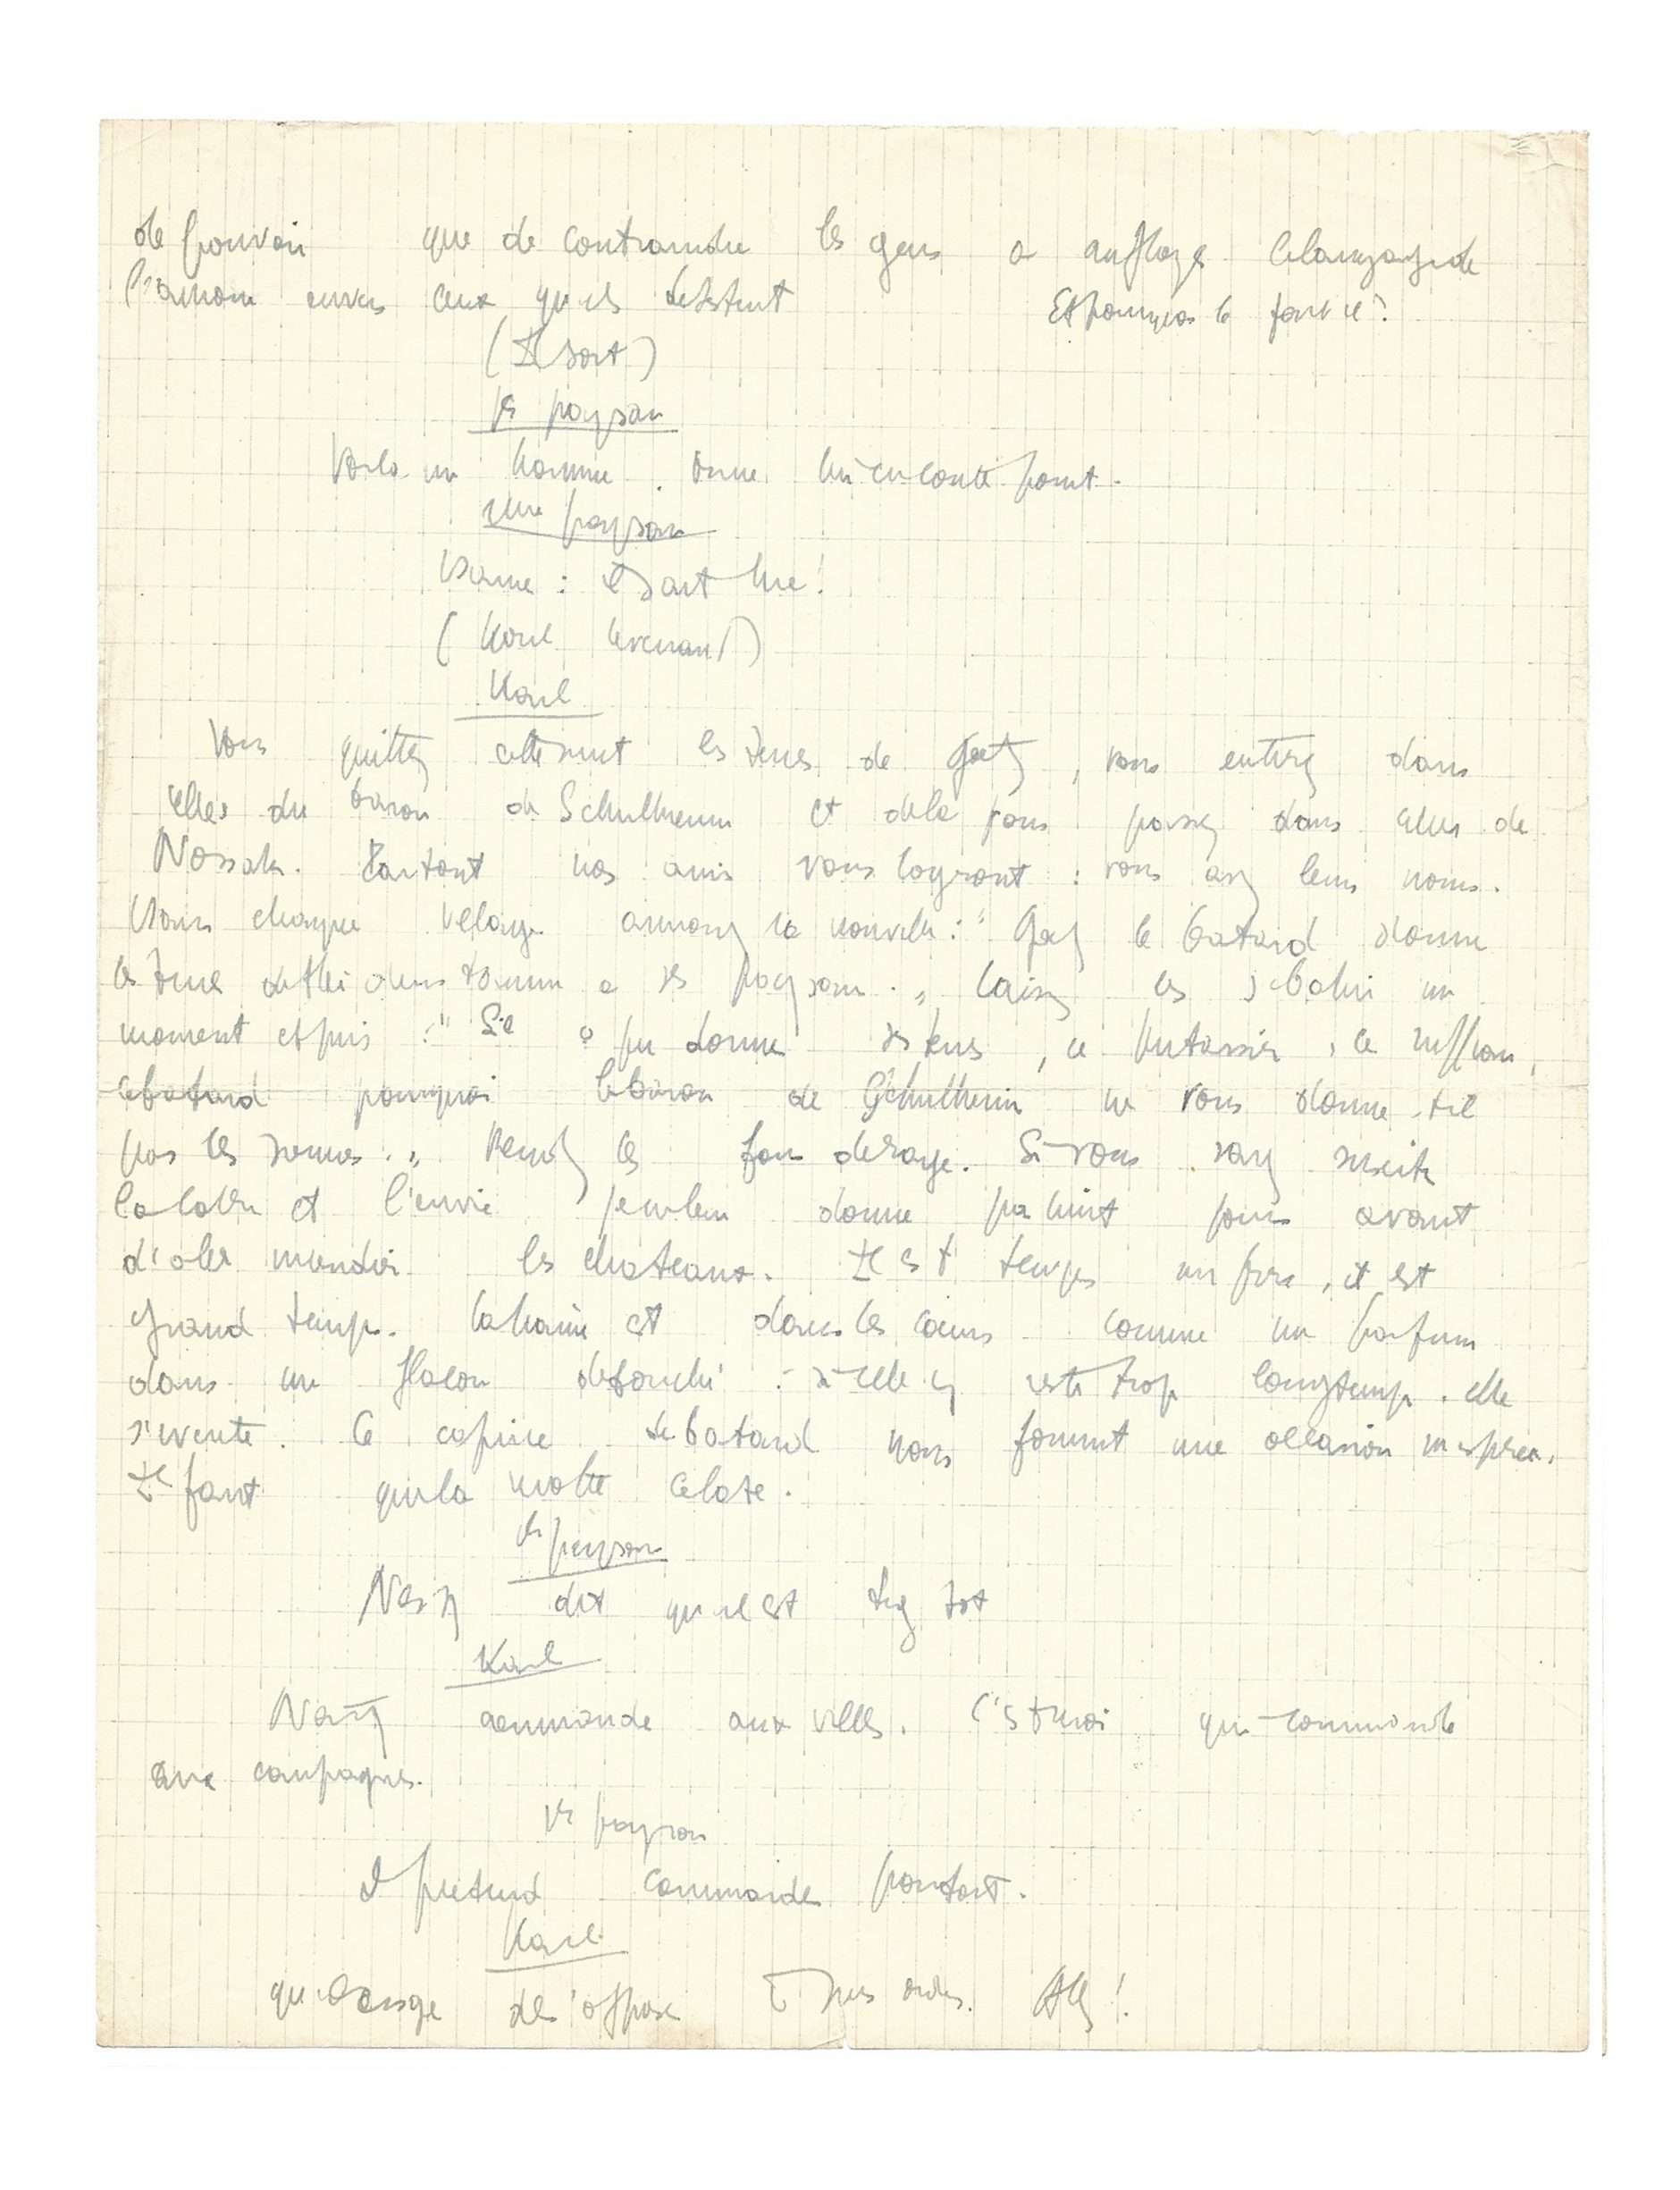 de pouvoir que de contraindre les gens a employer le langage de
l'amour envers ceux qu'ils detestent Et pourquoi le font-il?
(Il sort)
1er paysan
Voila un homme. Une
2eme paysan
(Karl revenant)
Karl
Vous quittez cette nuit les terres de Goetz, vous entrez dans
celles du baron de Schulheim et de la vous passez dans celles de
Nossak. Partout nos amis vous logeront : vous avez leurs noms.
Dans chaque village annoncez la nouvelle : " Goetz le batard donne
les terres de Heidenstamm a ses paysans. " Laissez les s'ebahir un
moment et puis : " S'il a pu donner ses terres, ce putassier, ce ruffian,
ce batard pourquoi le baron de Schulheim ne vous donne-t-il
pas les siennes. " Rendez les fous de rage. Si vous savez susciter
la colere et l'envie je donne pas huit jours avant
d'aller incendier les chateaux. Il est temps mes freres, il est
grand temps. La haine est dans les coeurs comme un parfum
dans un flacon debouché : si elle y reste trop longtemps, elle
s'evente. Le caprice du batard nous fournit une occasion inesperee.
Il faut que la revolte eclate.
1er paysan
Nasty dit qu'il est trop tot
Karl
Nasty commande aux villes. C'est moi qui commande
aux campagnes.
1er paysan
Il pretend commander partout.
Karl
qu'il de s'opposer à mes ordres. Allez !